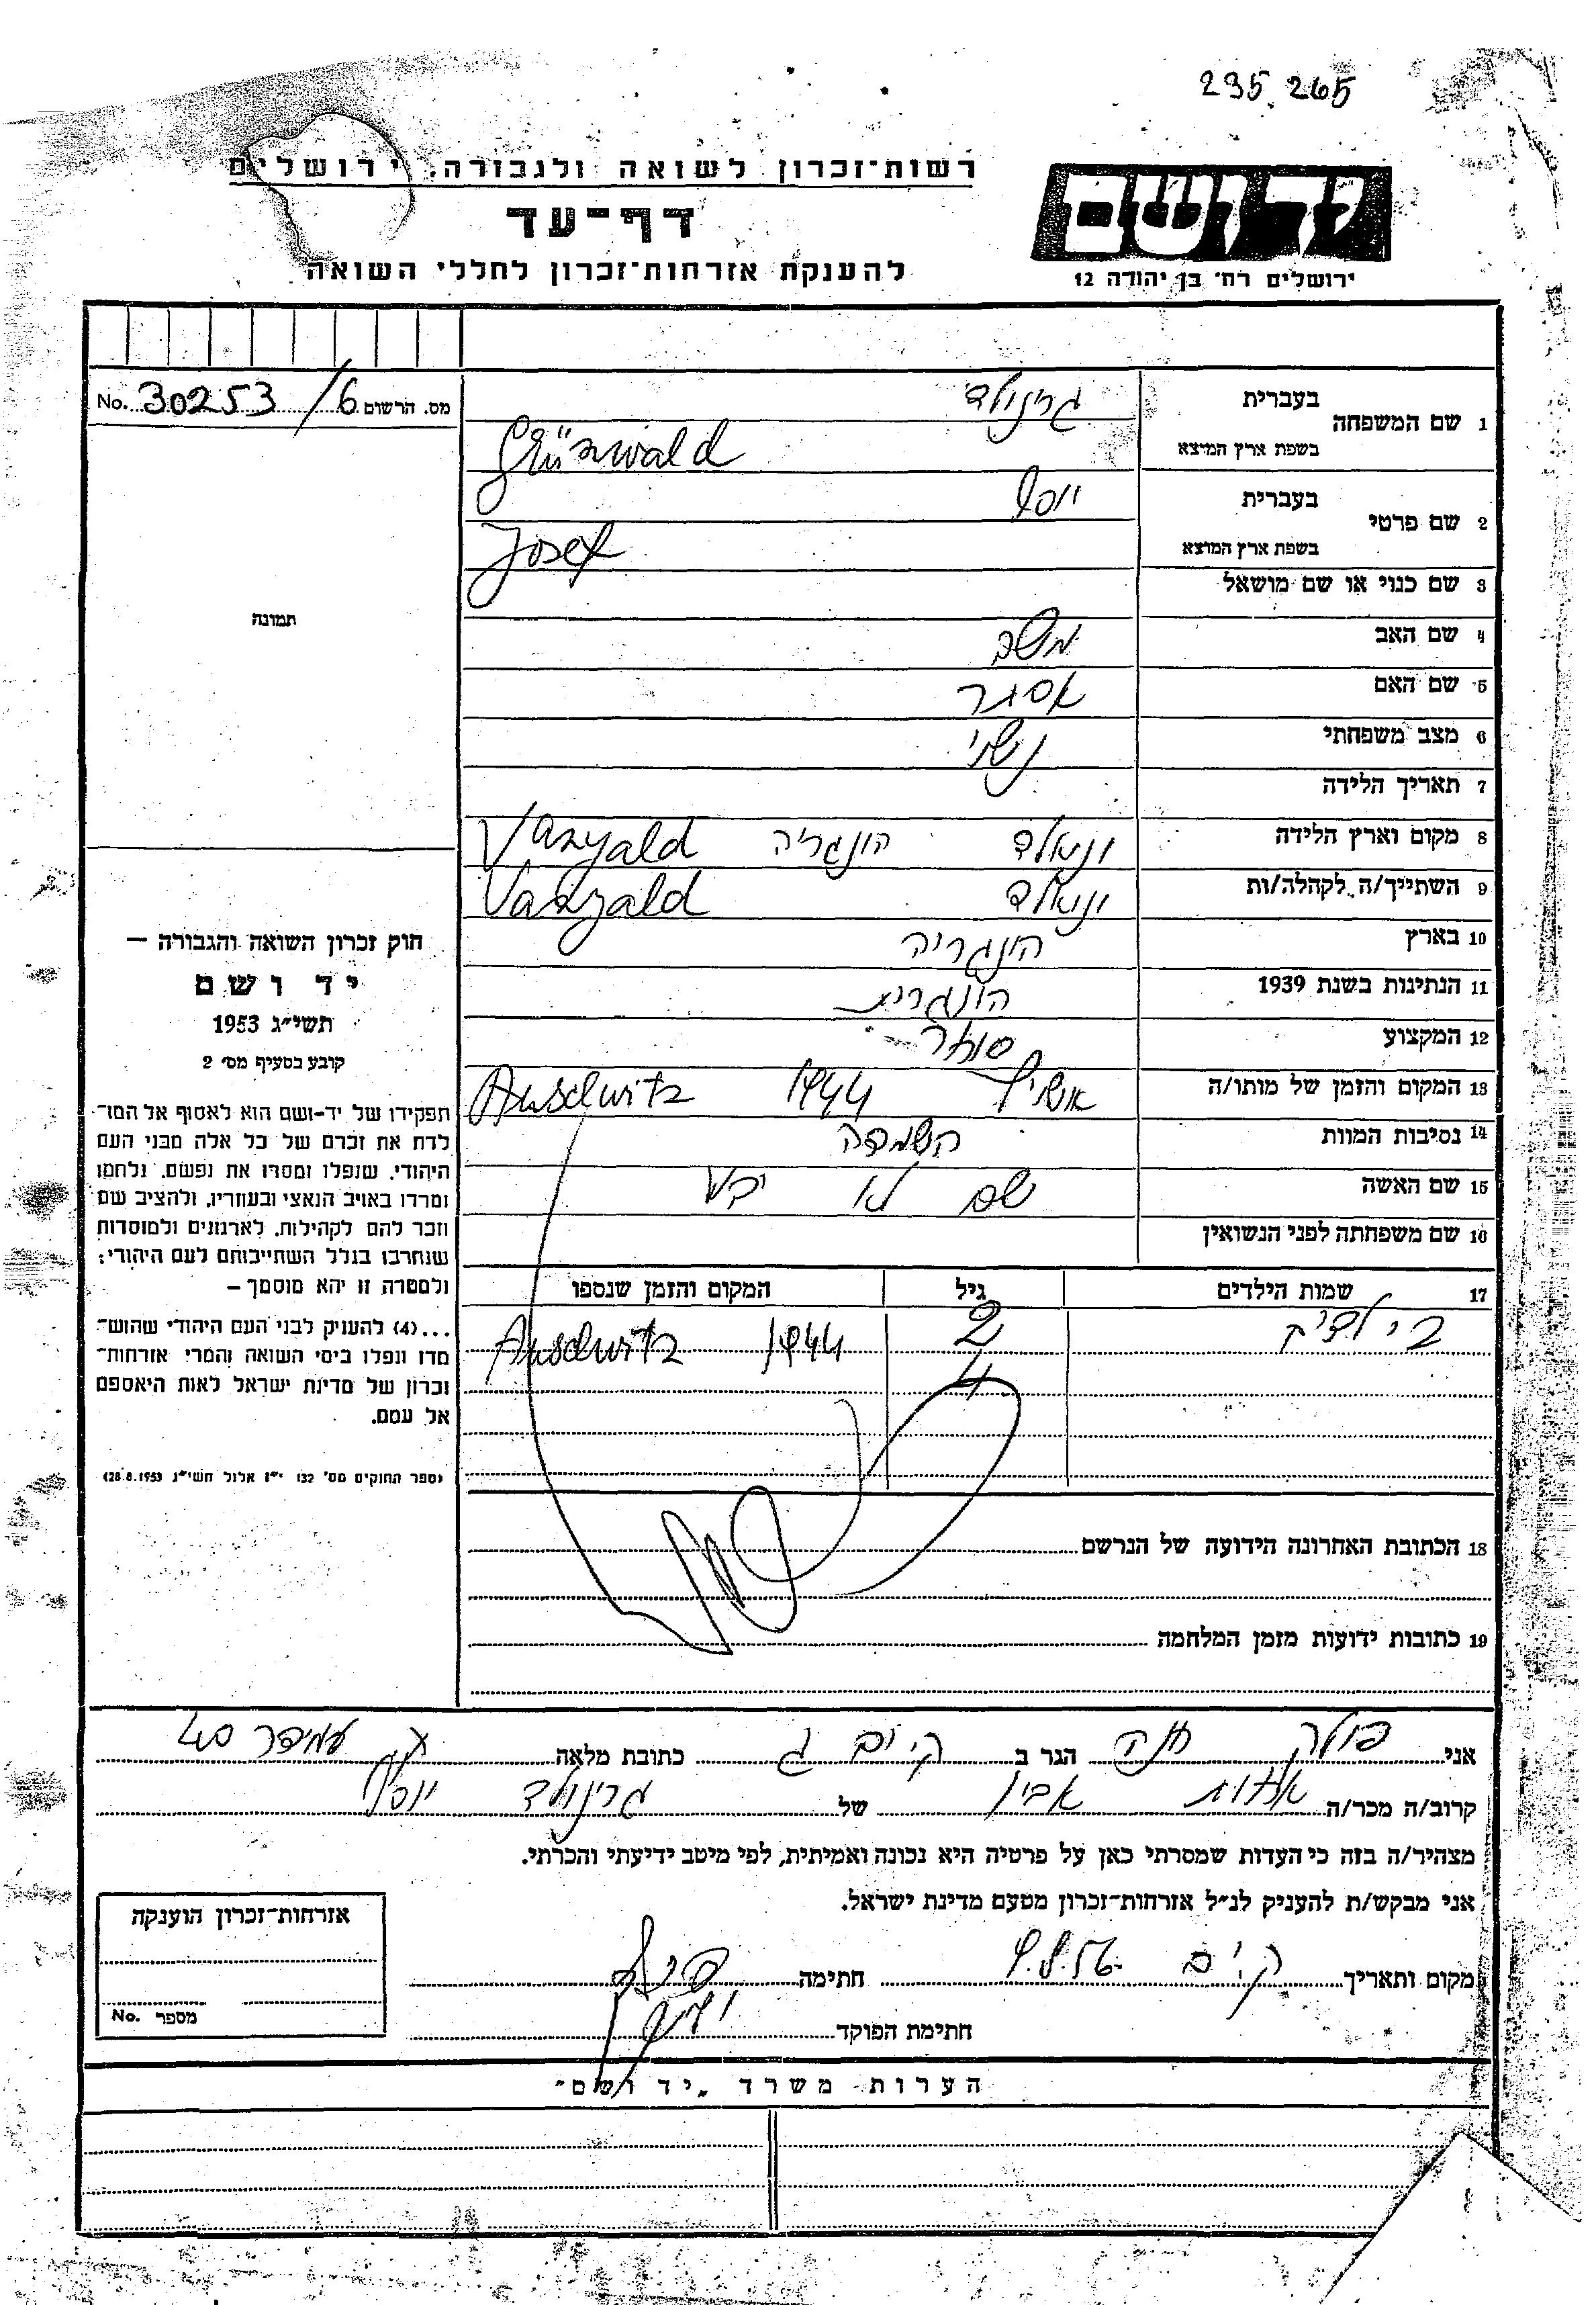 235265
רשות־זכרון לשואה ולגבורה, ירושלים
דף־עד
להענקת אזרחות־זכרון לחללי השואה
יד ושם
ירושלים רח' בן יהודה 12
מס. הרשום 30253/6 No.
1 שם המשפחה בעברית גרינולד
בשפת ארץ המוצא Grünwald
2 שם פרטי בעברית יוסף
בשפת ארץ המוצא Josef
3 שם כנוי או שם מושאל
4 שם האב משה
5 שם האם אסתר
6 מצב משפחתי נשוי
7 תאריך הלידה
8 מקום וארץ הלידה הונגריה
9 השתייך/ה לקהלה/ות
10 בארץ הונגריה
11 הנתינות בשנת 1939 הונגרית
12 המקצוע סוחר
13 המקום והזמן של מותו/ה 1944 Auschwitz
14 נסיבות המוות השמדה
15 שם האשה שם לא ידוע
16 שם משפחתה לפני הנשואין
17 שמות הילדים גיל המקום והזמן שנספו
2 ילדים 2 1944 Auschwitz
4
18 הכתובת האחרונה הידועה של הנרשם
19 כתובות ידועות מזמן המלחמה
תמונה
חוק זכרון השואה והגבורה —
יד ושם
תשי״ג 1953
קובע בסעיף מס' 2
תפקידו של יד-ושם הוא לאסוף אל המו־
לדת את זכרם של כל אלה מבני העם
היהודי, שנפלו ומסרו את נפשם, נלחמו
ומרדו באויב הנאצי ובעוזריו, ולהציב שם
וזכר להם לקהילות, לארגונים ולמוסדות
שנחרבו בגלל השתייכותם לעם היהודי;
ולמטרה זו יהא מוסמך —
...(4) להעניק לבני העם היהודי שהוש־
מדו ונפלו בימי השואה והמרי אזרחות־
זכרון של מדינת ישראל לאות היאספם
אל עמם.
(ספר החוקים מס' 132 י״ז אלול תשי״ג 28.8.1953)
אני פולק חנה הגר ב ק. ים ג כתובת מלאה עמידר
קרוב/ה מכר/ה אחות אבי של גרינולד יוסף
מצהיר/ה בזה כי העדות שמסרתי כאן על פרטיה היא נכונה ואמיתית, לפי מיטב ידיעתי והכרתי.
אני מבקש/ת להעניק לנ״ל אזרחות־זכרון מטעם מדינת ישראל.
מקום ותאריך ק. ים 9.8.56 חתימה
חתימת הפוקד
אזרחות־זכרון הוענקה
מספר No.
הערות משרד „יד ושם״